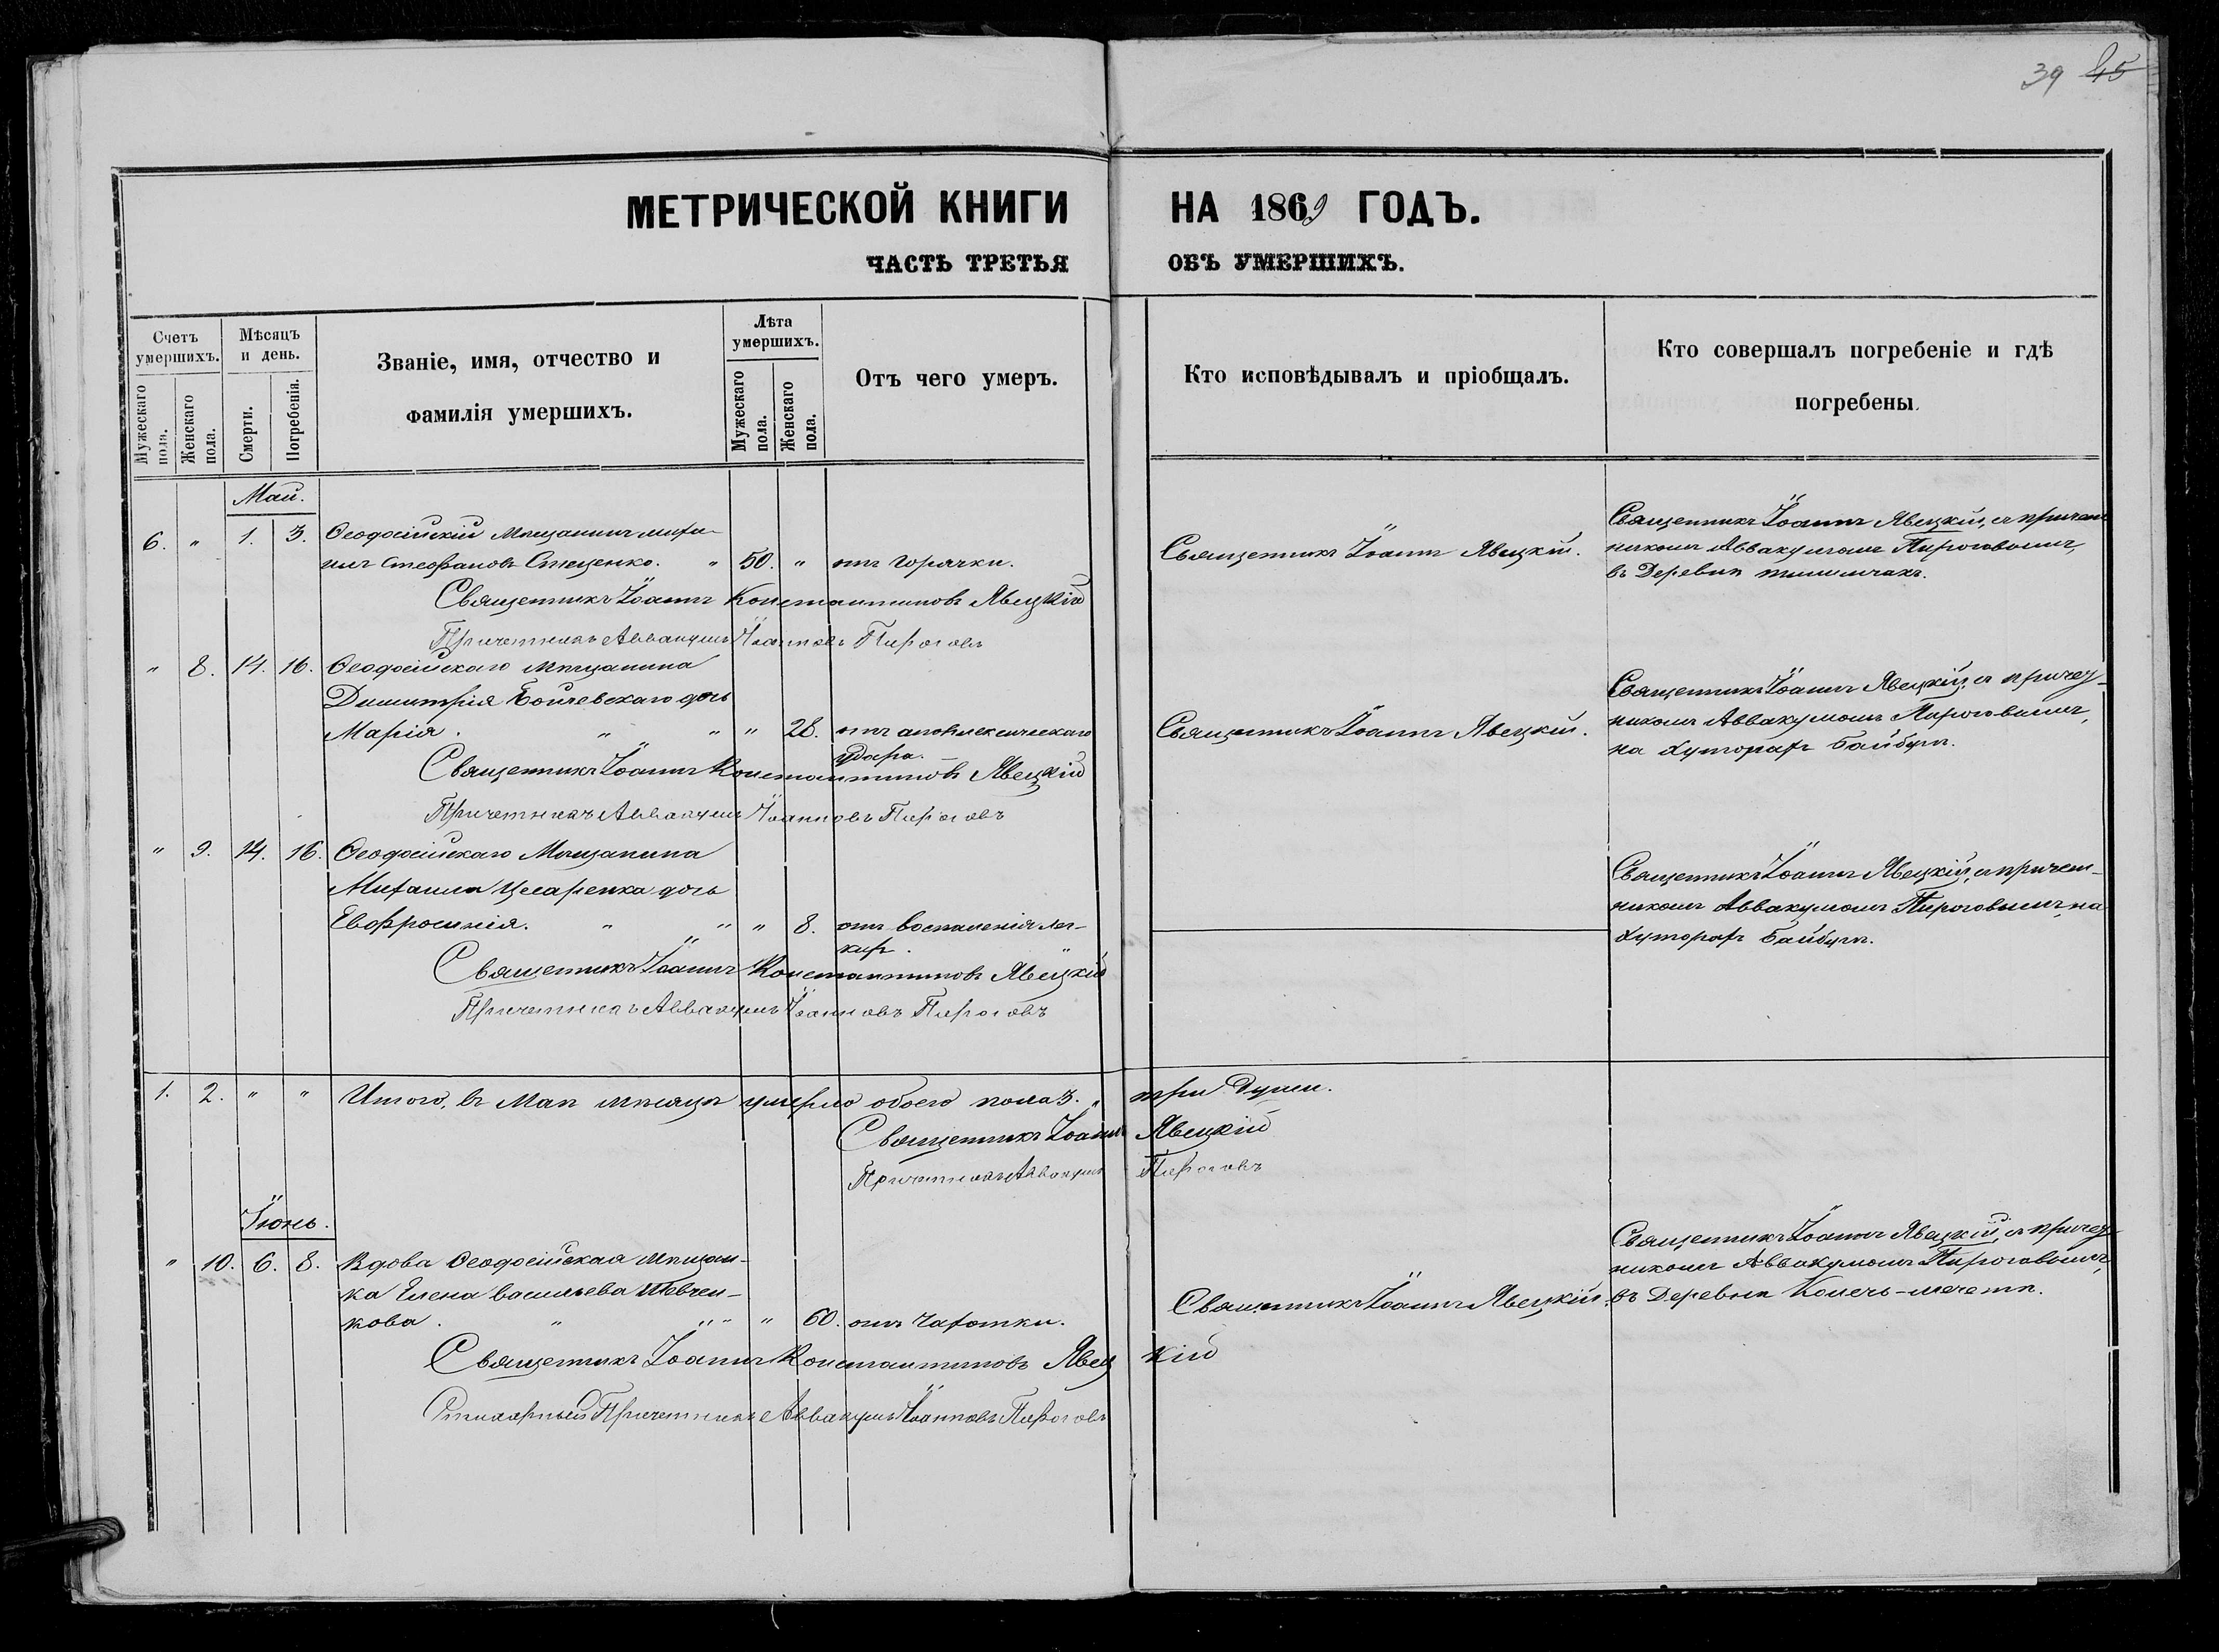 39 45
МЕТРИЧЕСКОЙ КНИГИ НА 1869 ГОДЪ.
ЧАСТЬ ТРЕТЬЯ ОБЪ УМЕРШИХЪ.
Счетъ умершихъ.
Мужескаго пола.
Женскаго пола.
Мѣсяцъ и день.
Смерти.
Погребенія.
Званіе, имя, отчество и
фамилія умершихъ.
Лѣта умершихъ.
Мужескаго пола.
Женскаго пола.
Отъ чего умеръ.
Кто исповѣдывалъ и пріобщалъ.
Кто совершалъ погребеніе и гдѣ
погребены.
Май.
6. " 1. 3. Ѳеодосійскій Мѣщанинъ Миха-
илъ Стефановъ Стеценко. " 50. " отъ горячки.
Священникъ Іоаннъ Явецкій.
Священникъ Іоаннъ Явецкій, съ причет
никомъ Аввакумомъ Пироговымъ,
въ Деревнѣ
Священникъ Іоаннъ Константиновъ Явецкій
Причетникъ Аввакумъ Іоанновъ Пироговъ
" 8. 14. 16. Ѳеодосійскаго Мѣщанина
Димитрія дочь
Марія. " " " 28. отъ апоплексическаго
удара.
Священникъ Іоаннъ Явецкій.
Священникъ Іоаннъ Явецкій, съ причет-
никомъ Аввакумомъ Пироговымъ,
на хуторахъ Байбугъ.
Священникъ Іоаннъ Константиновъ Явецкій
Причетникъ Аввакумъ Іоанновъ Пироговъ
" 9. 14. 16. Ѳеодосійскаго Мѣщанина
Михаила Цесаренка дочь
Евфросинія. " " " 8. отъ воспаленія лег-
кихъ. "
Священникъ Іоаннъ Явецкій, съ причет-
никомъ Аввакумомъ Пироговымъ, на
хуторахъ Байбугъ.
Священникъ Іоаннъ Константиновъ Явецкій
Причетникъ Аввакумъ Іоанновъ Пироговъ
1. 2. " " Итого, въ Маѣ мѣсяцѣ умерло обоего пола 3. " три души.
Священникъ Іоаннъ Явецкій
Причетникъ Аввакумъ Пироговъ
Іюнь.
" 10. 6. 8. Вдова Ѳеодосійская мѣщан-
ка Елена Васильева Шевчен-
кова. " " " " 60. отъ чахотки.
Священникъ Іоаннъ Явецкій.
Священникъ Іоаннъ Явецкій, съ причет-
никомъ Аввакумомъ Пироговымъ,
въ Деревнѣ Конечь-мечети.
Священникъ Іоаннъ Константиновъ Явецкій
Причетникъ Аввакумъ Іоанновъ Пироговъ